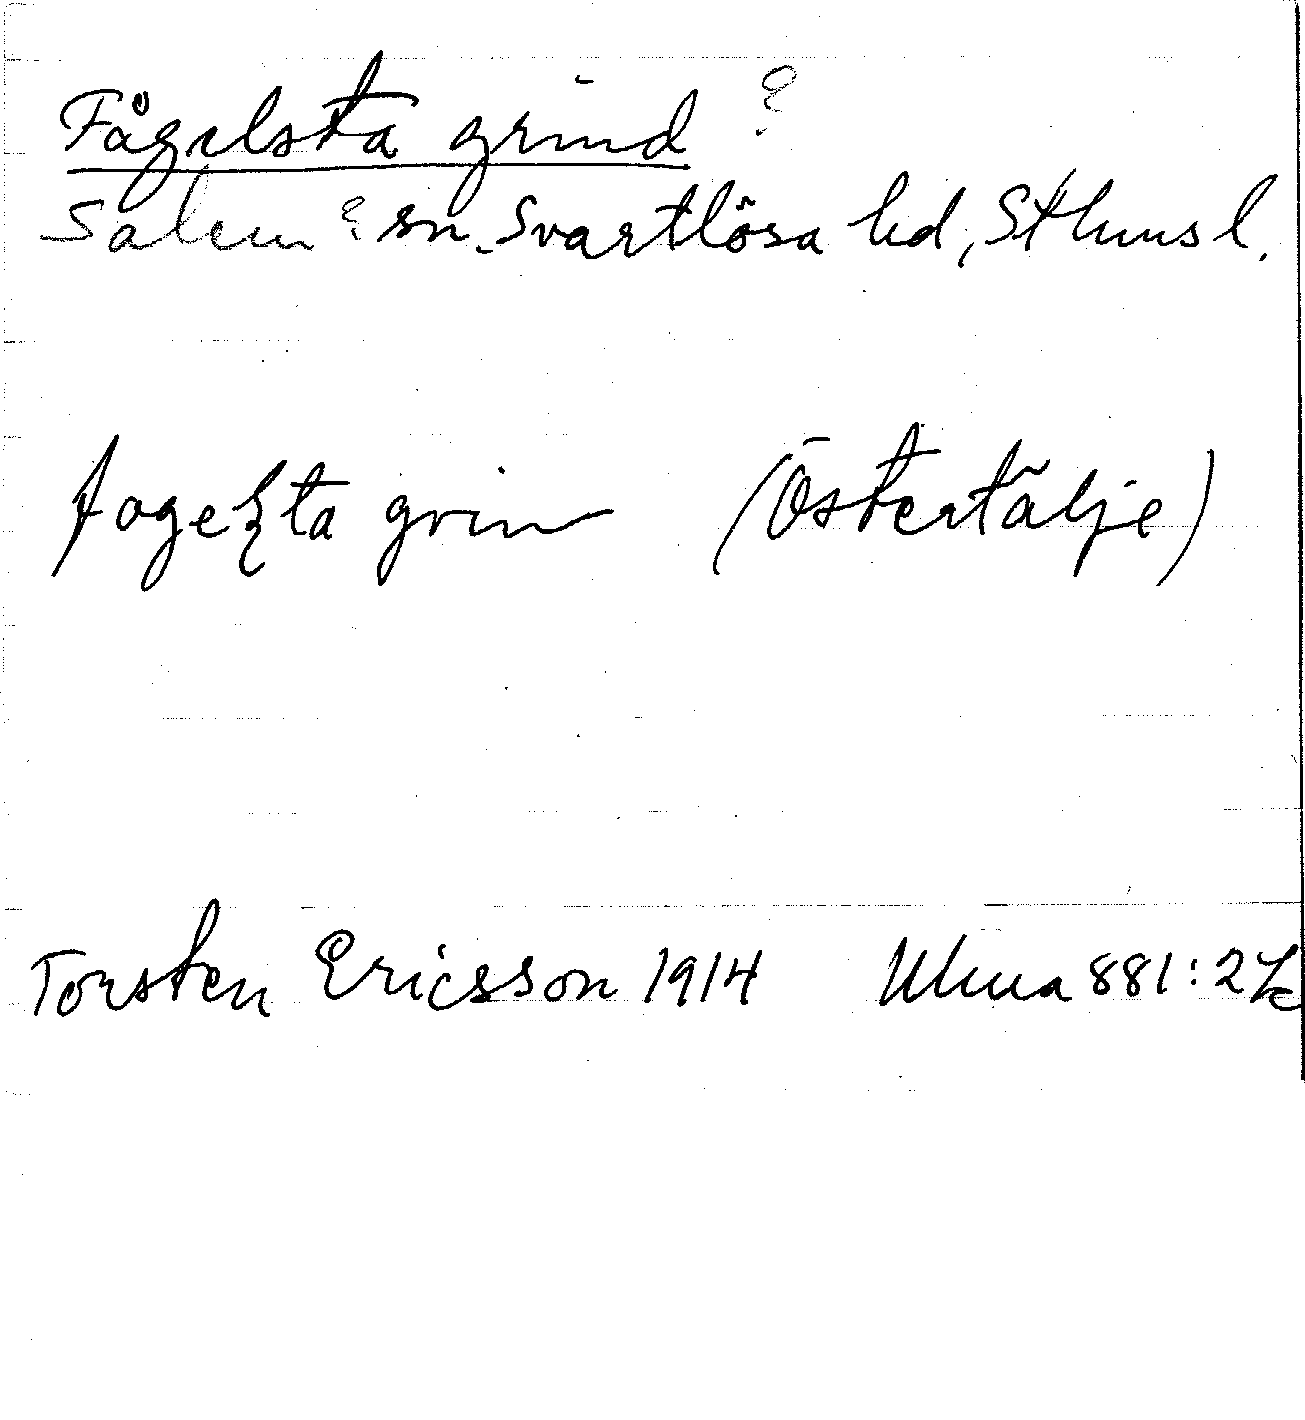 Fågelsta grind ?
Salem ? sn. Svartlösa hd, Sthms l.
fogeʂta grin (Östertälje)
Torsten Ericsson 1914 Ulma 881:2